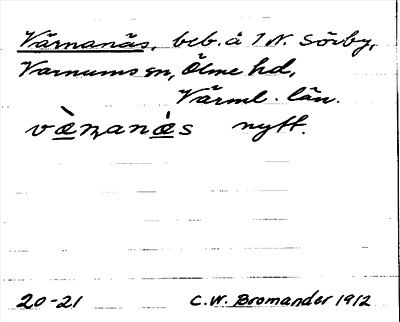 Värnanäs, beb. å 7 N. Sörby,
Varnums sn, Ölme hd,
Värml. län.
væ̀ɳanæ̀s nytt.
20-21 C.W. Bromander 1912